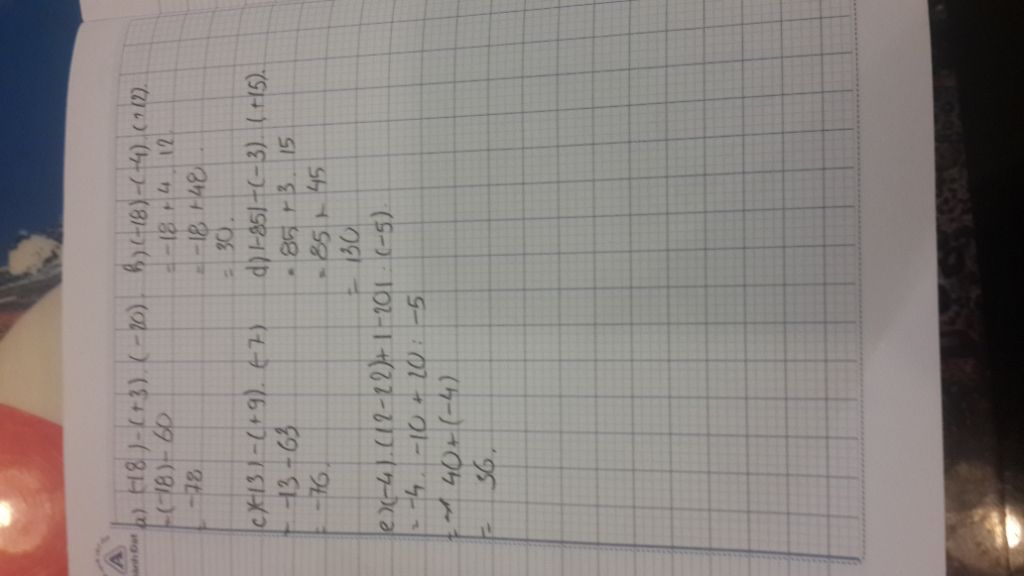 a) (-18) - (+3) . (-20).
= (-18) - 60
= -78
b) (-18) - (-4) . (+12).
= -18 + 4 . 12.
= -18 + 48.
= 30.
c) (-13) - (+9) . (-7)
= -13 - 63
= -76.
d) |-85| - (-3) . (+15).
= 85 + 3 . 15
= 85 + 45
= 130
e) (-4) . (12 - 22) + |-20| : (-5).
= -4 . -10 + 20 : -5
= 40 + (-4)
= 36.